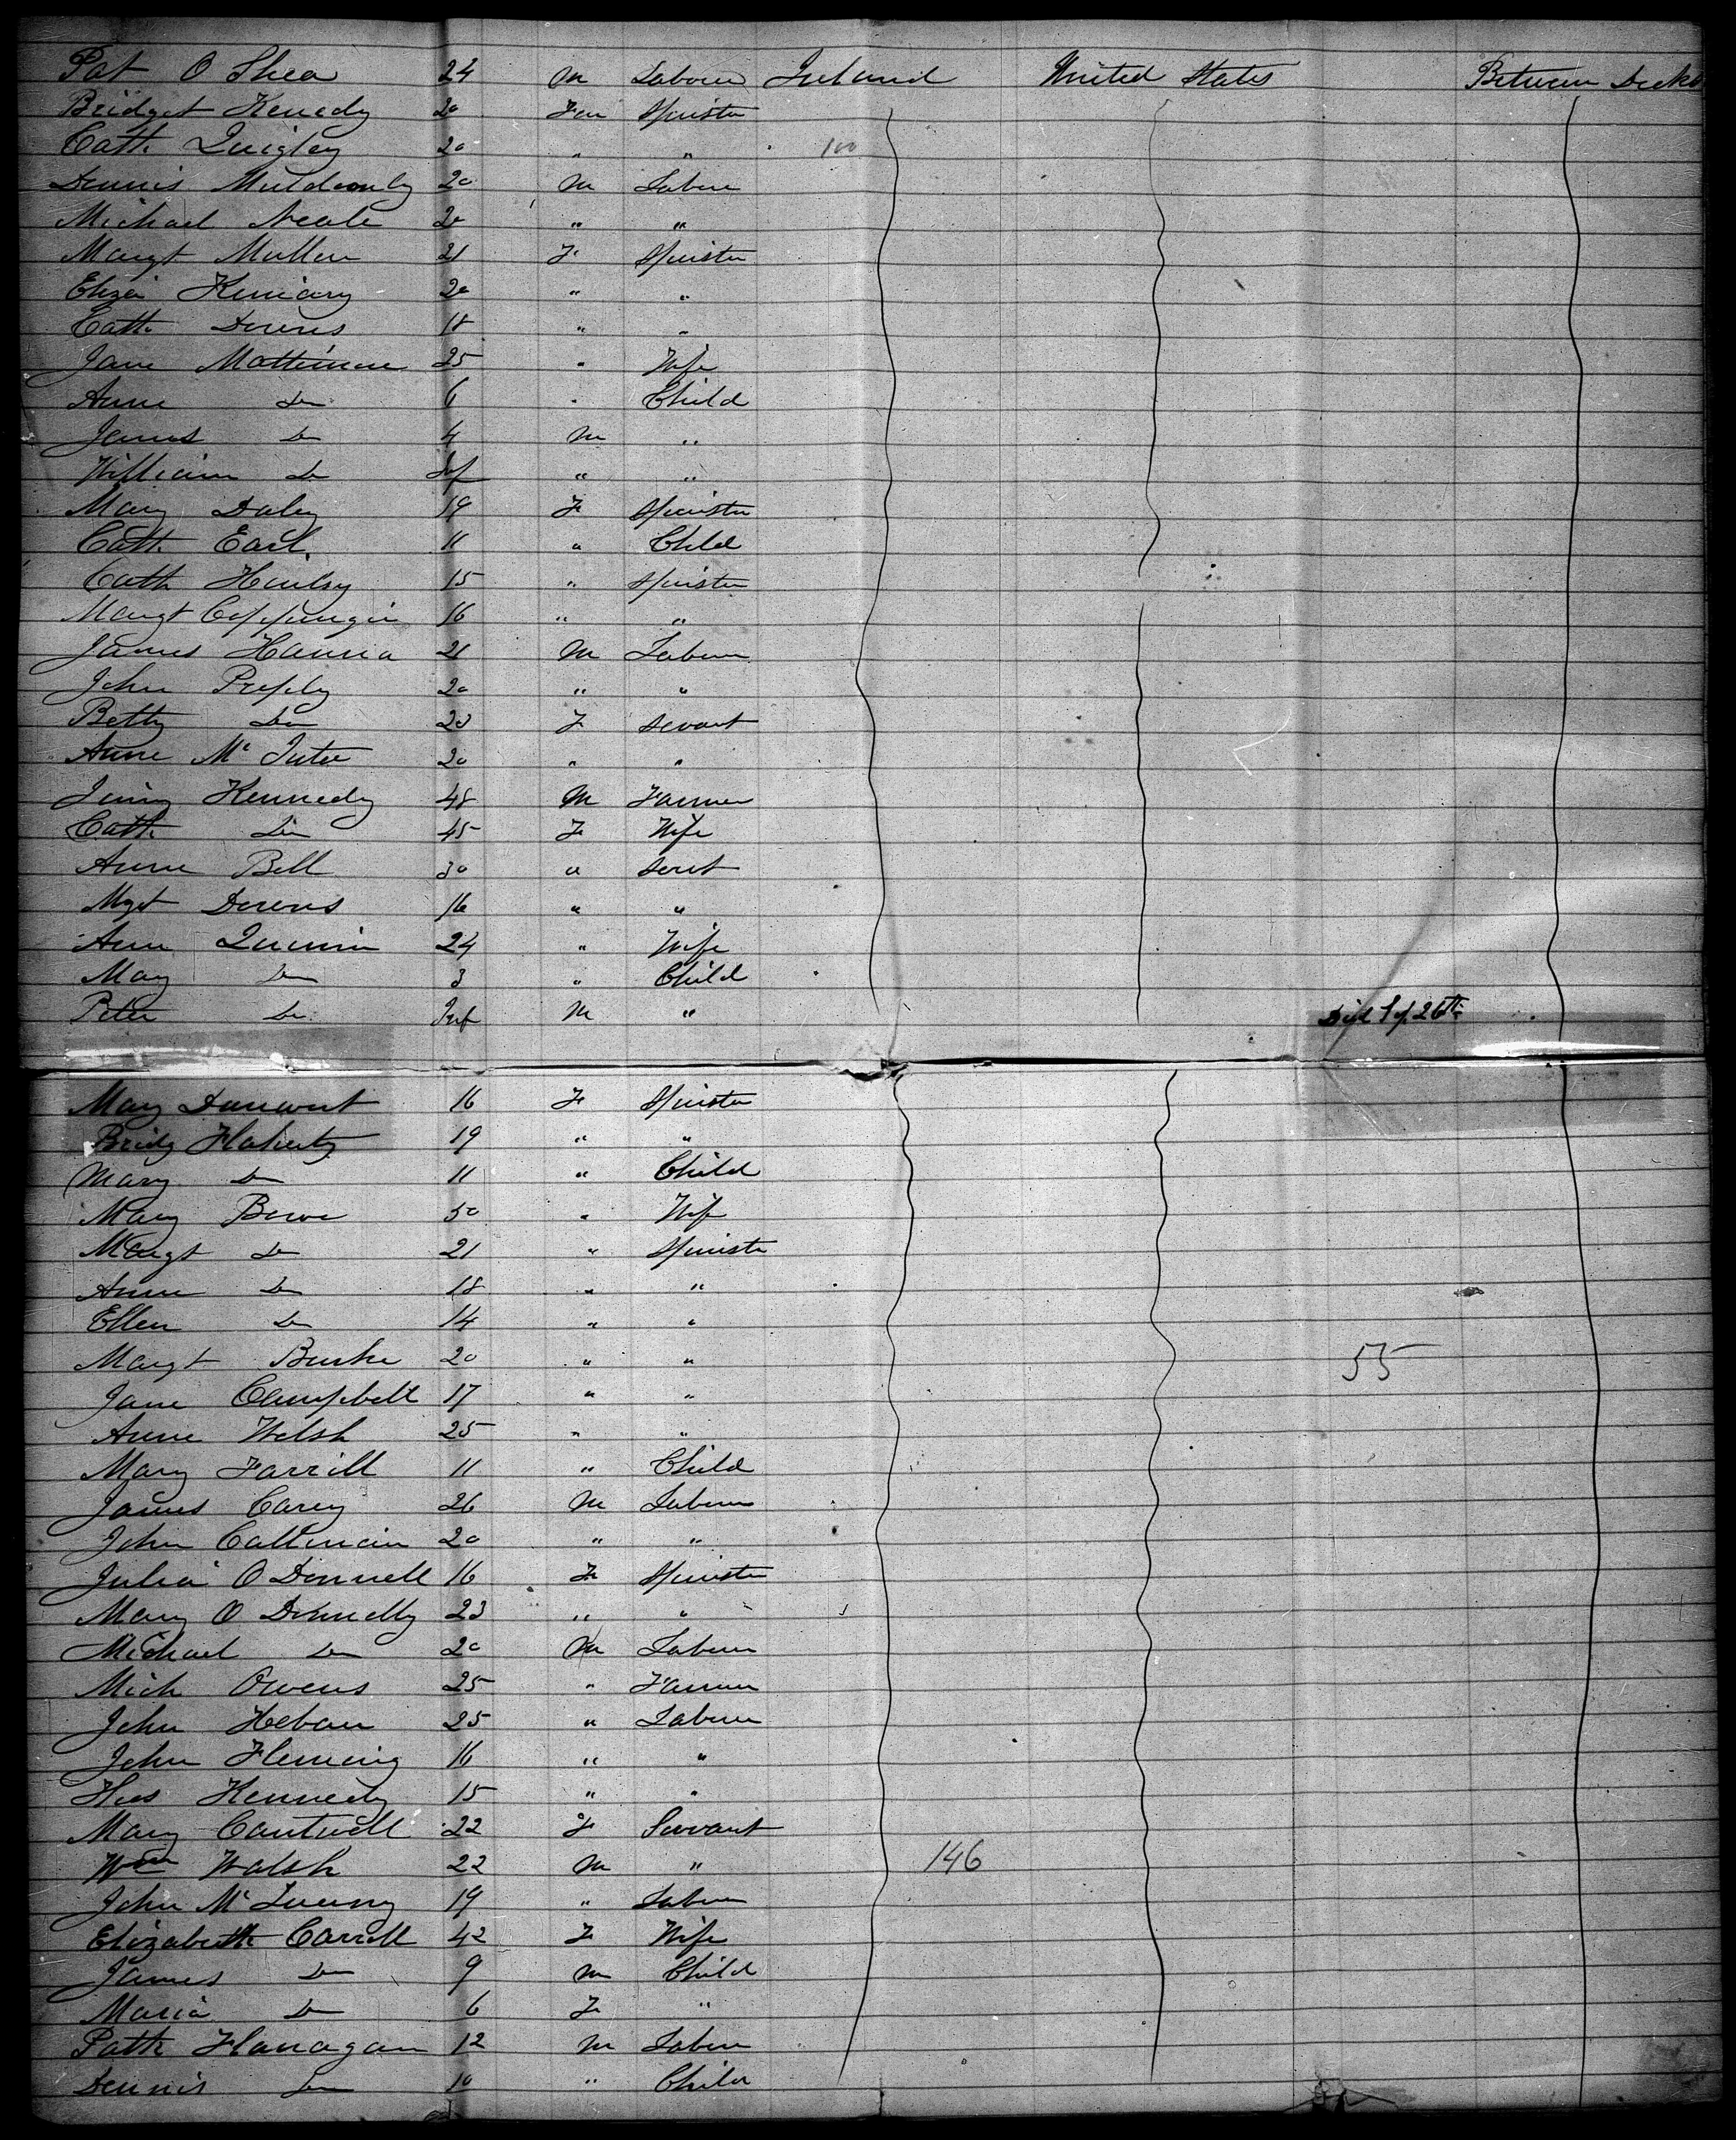 Pat O Shea 24 M Labourer Ireland United States Between Decks
Bridget Kenedy 20 Fem Spinster
Cath. Quigley 20 " " 100
Dennis Muldoonly 20 M Labour
Michael Neale 20 " "
Margt Mullen 21 F Spinster
Eliza 20 " "
Cath. Downs 18 " "
Jane Mattimore 25 " Wife
Anne Do 6 " Child
James Do 4 M "
William Do Inf " "
Mary Daley 19 F Spinster
Cath. Earl 11 " Child
Cath 15 " Spinster
Margt 16 " "
James Hanna 21 M Labour
John 20 " "
Betty Do 23 F Servant
Anne Mc 20 " "
Jimy Kennedy 48 M Farmer
Cath. Do 45 F Wife
Anne Bell 30 " Servt
Mgt Downs 16 " "
Ann 24 " Wife
Mary Do 3 " Child
Peter Do Inf M " Died Sep. 26th
Mary 16 F Spinster
Bridg Flaherty 19 " "
Mary Do 11 " Child
Mary Bowe 50 " Wife
Margt Do 21 " Spinster
Anne Do 18 " "
Ellen Do 14 " "
Margt Burke 20 " " 55
Jane Campbell 17 " "
Anne Welsh 25 " "
Mary Farrill 11 " Child
James Carey 26 M Labour
John 20 " "
Julia O Donnell 16 F Spinster
Mary O Donnelly 23 " "
Michael Do 20 M Labour
Mich Owens 25 " Farmer
John Heban 25 " Labour
John Fleming 16 " "
Kennedy 15 " "
Mary Cantwell 22 F Servant
Wm Walsh 22 M " 146
John Mc 19 " Labour
Elizabeth Carroll 42 F Wife
James Do 9 M Child
Maria Do 6 F "
Patk Flanagan 12 M Labour
Dennis Do 10 " Child